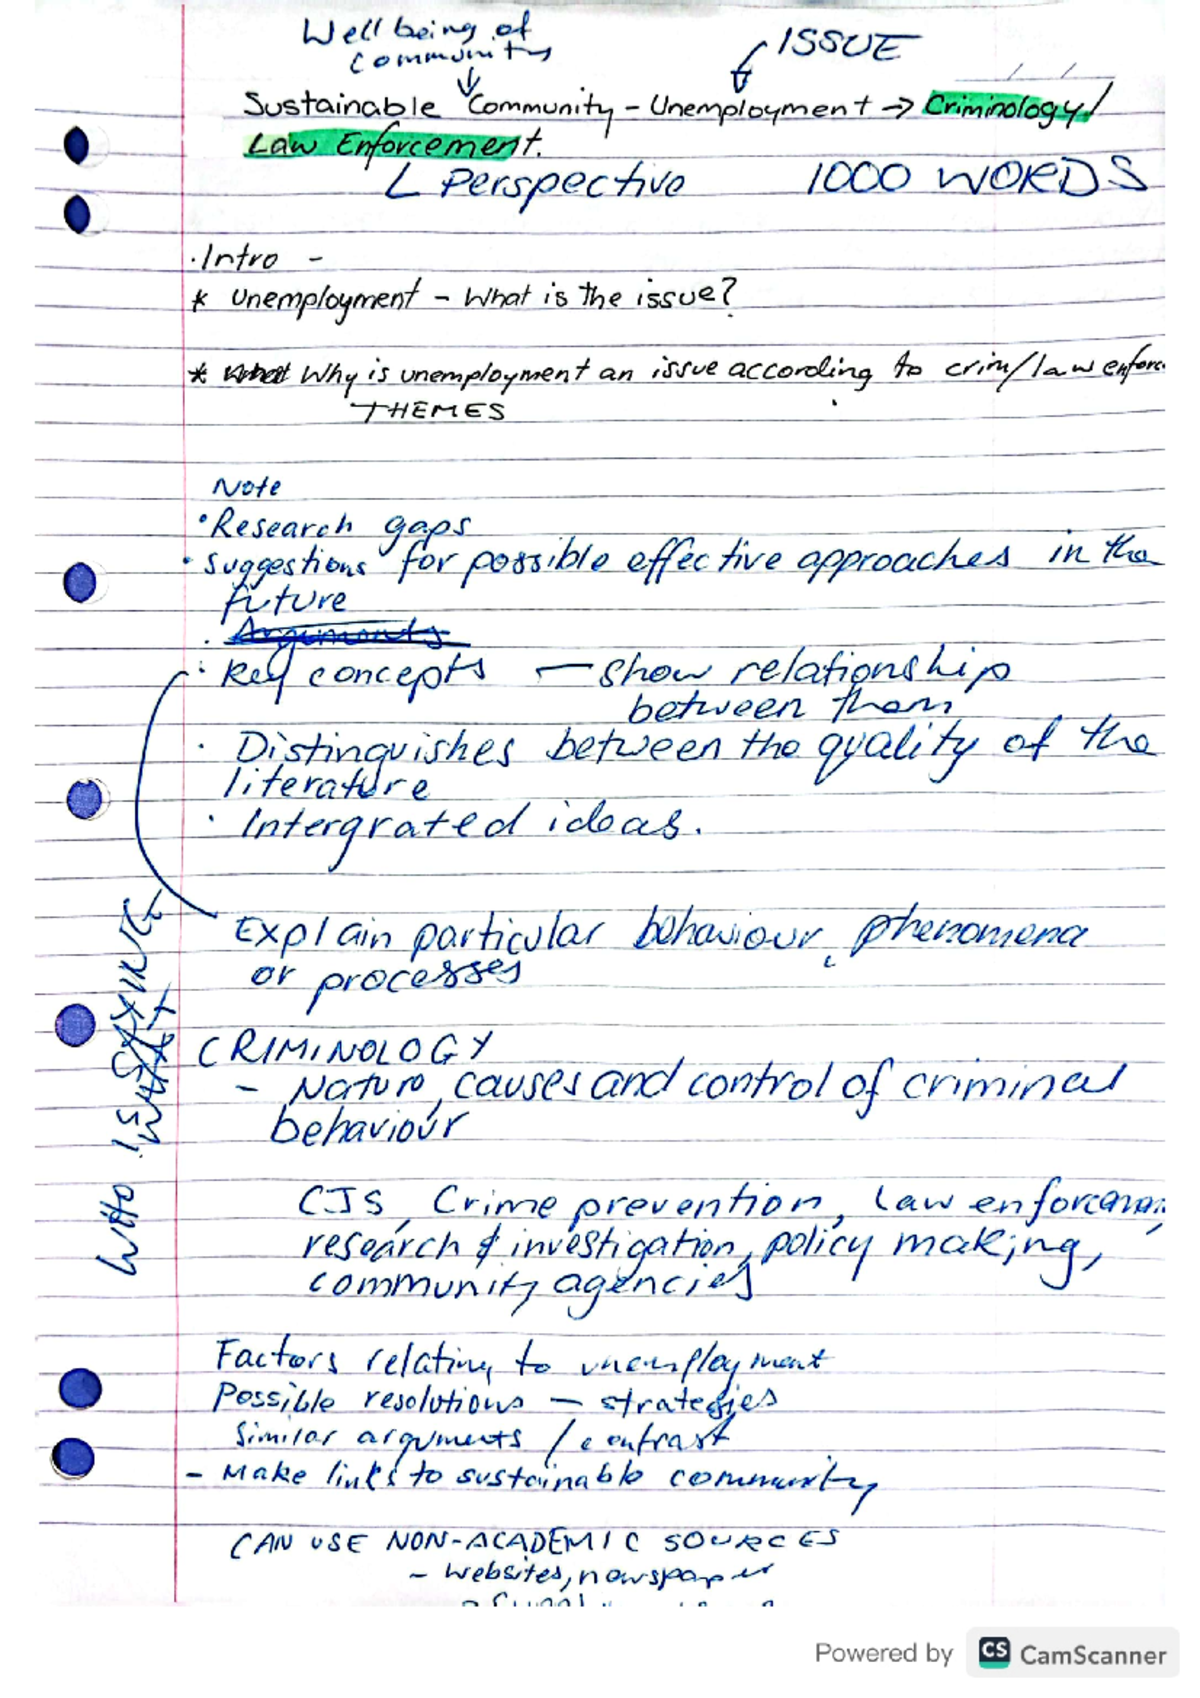 Well being of
community
ISSUE
Sustainable Community - Unemployment → Criminology/
Law Enforcement.
Perspective 1000 WORDS
· Intro -
* Unemployment - What is the issue?
* Why is unemployment an issue according to crim/law enforc
THEMES
Note
• Research gaps
• Suggestions for possible effective approaches in the
future
· Arguments
· Key concepts — show relationship
between them
· Distinguishes between the quality of the
literature
· Intergrated ideas.
Explain particular behaviour, phenomena
or processes
WHO IS SAYING
WHAT
CRIMINOLOGY
- Nature, causes and control of criminal
behaviour
CJS, Crime prevention, Law enforcement,
research & investigation, policy making,
community agencies
Factors relating to unemployment
Possible resolutions — strategies
Similar arguments / contrast
- Make links to sustainable community
CAN USE NON-ACADEMIC SOURCES
- websites, newspaper
Powered by CS CamScanner